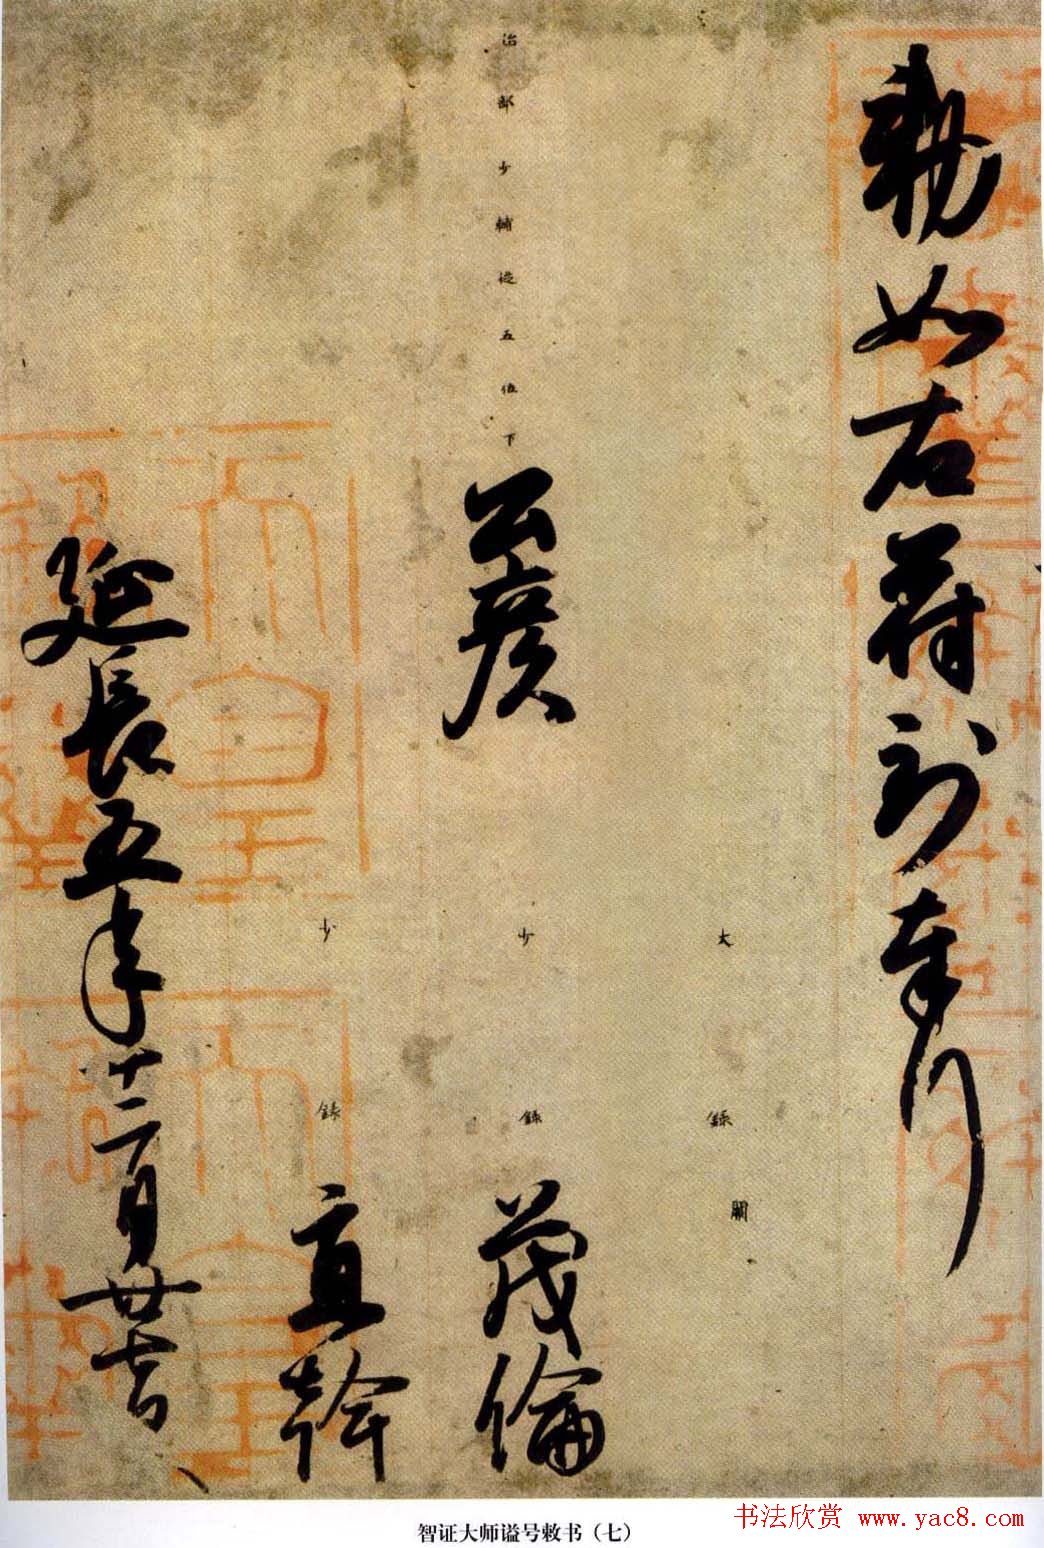 勅如右符到奉行
大録 闕
治部少輔從五位下 公彦 少録 茂倫
少録 直幹
延長五年十二月廿七日
天皇御璽
智证大师谥号敕书（七）
书法欣赏 www.yac8.com